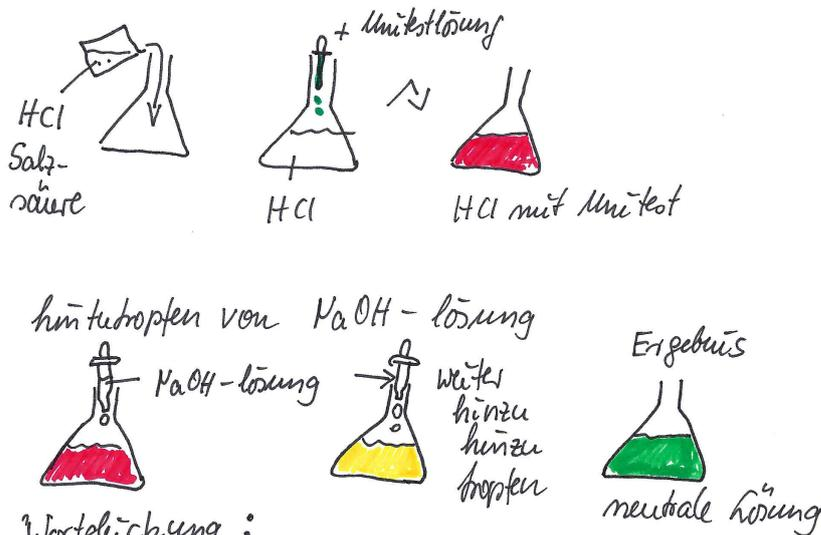 + Unitestlösung
HCl
Salz-
säure
HCl
HCl mit Unitest
hinzutropfen von NaOH-lösung
NaOH-lösung
weiter
hinzu
hinzu
tropfen
Ergebnis
neutrale Lösung
Wortgleichung :